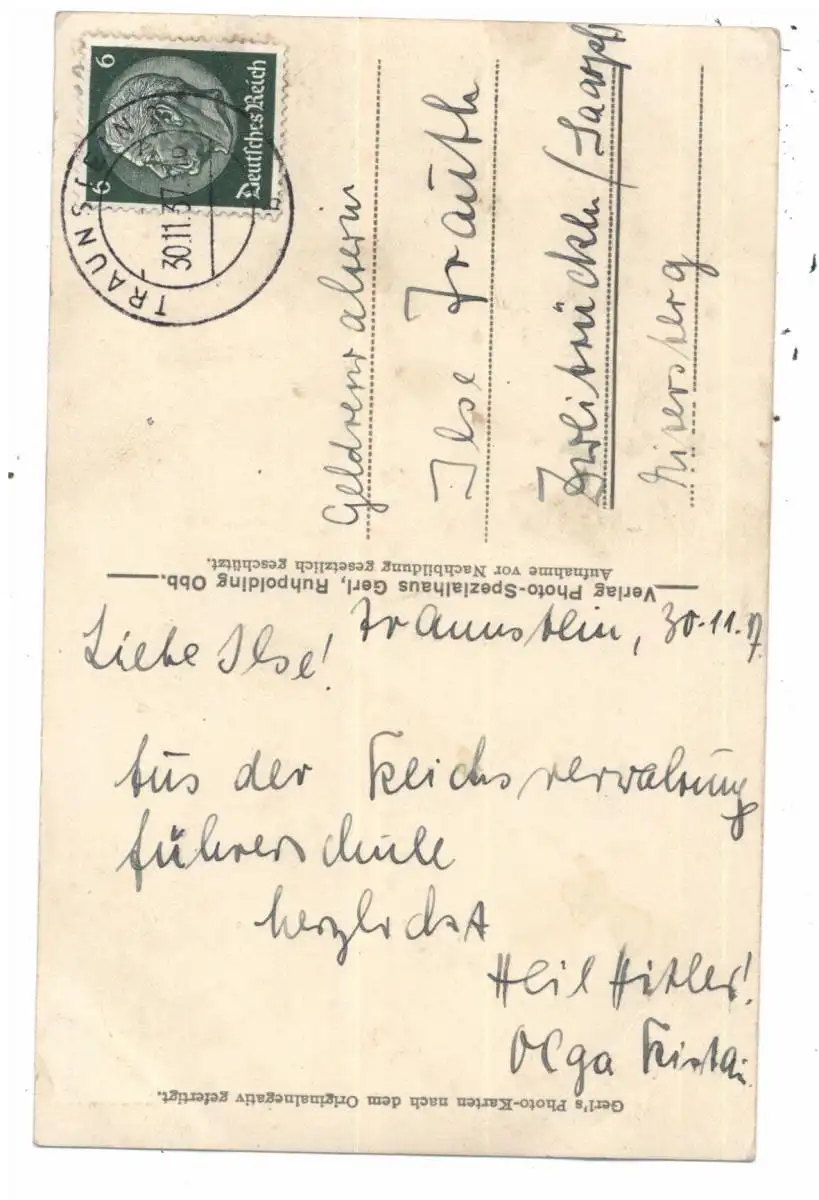 6
6
Deutsches Reich
TRAUNSTEIN
30.11.37
Ilse Trauth
Zweibrücken / Saarpf
Verlag Photo-Spezialhaus Gerl, Ruhpolding Obb.
Aufnahme vor Nachbildung gesetzlich geschützt.
Traunstein, 30.11.37
Liebe Ilse!
Aus der Reichsverwaltung
führerschule
herzlichst
Heil Hitler!
Olga
Gerl's Photo-Karten nach dem Originalnegativ gefertigt.